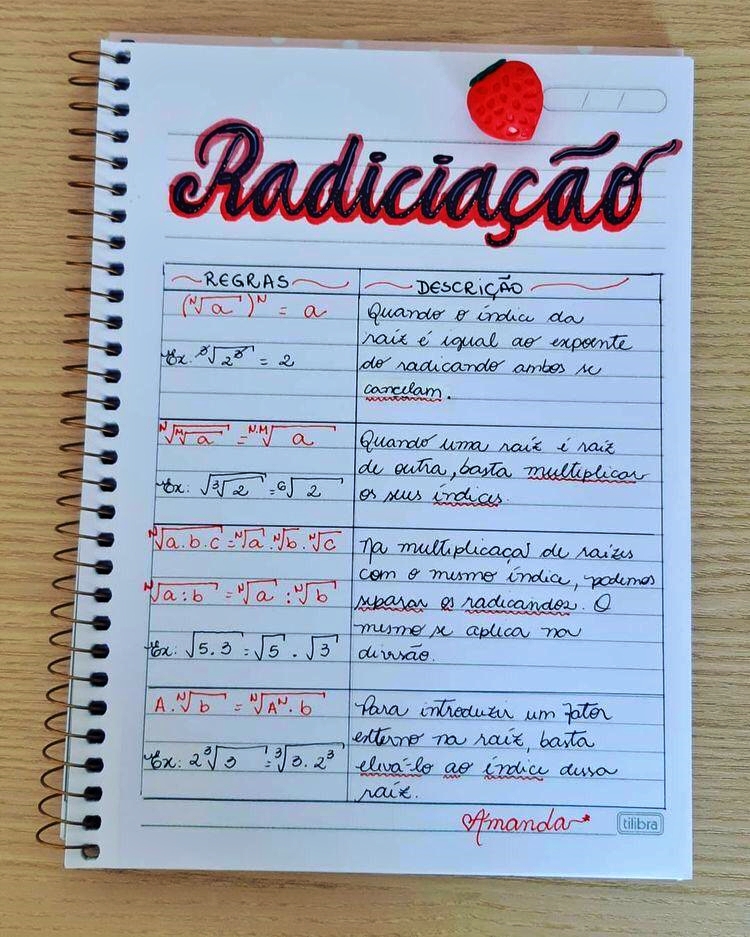 Radiciação
REGRAS
DESCRIÇÃO
(ᴺ√a)ᴺ = a
Ex: ³√2³ = 2
Quando o índice da
raíz é igual ao expoente
do radicando ambos se
cancelam.
ᴺ√ᴹ√a = ᴺ·ᴹ√a
Ex: √³√2 = ⁶√2
Quando uma raíz é raíz
de outra, basta multiplicar
os seus índices.
ᴺ√a.b.c = ᴺ√a . ᴺ√b . ᴺ√c
ᴺ√a:b = ᴺ√a : ᴺ√b
Ex: √5.3 = √5 . √3
Na multiplicaçã de raízes
com o mesmo índice, podemos
separar os radicandos. O
mesmo se aplica na
divisão.
A.ᴺ√b = ᴺ√Aᴺ.b
Ex: 2³√3 = ³√3.2³
Para introduzir um fator
externo na raíz, basta
elevá-lo ao índice dessa
raíz.
Amanda
tilibra